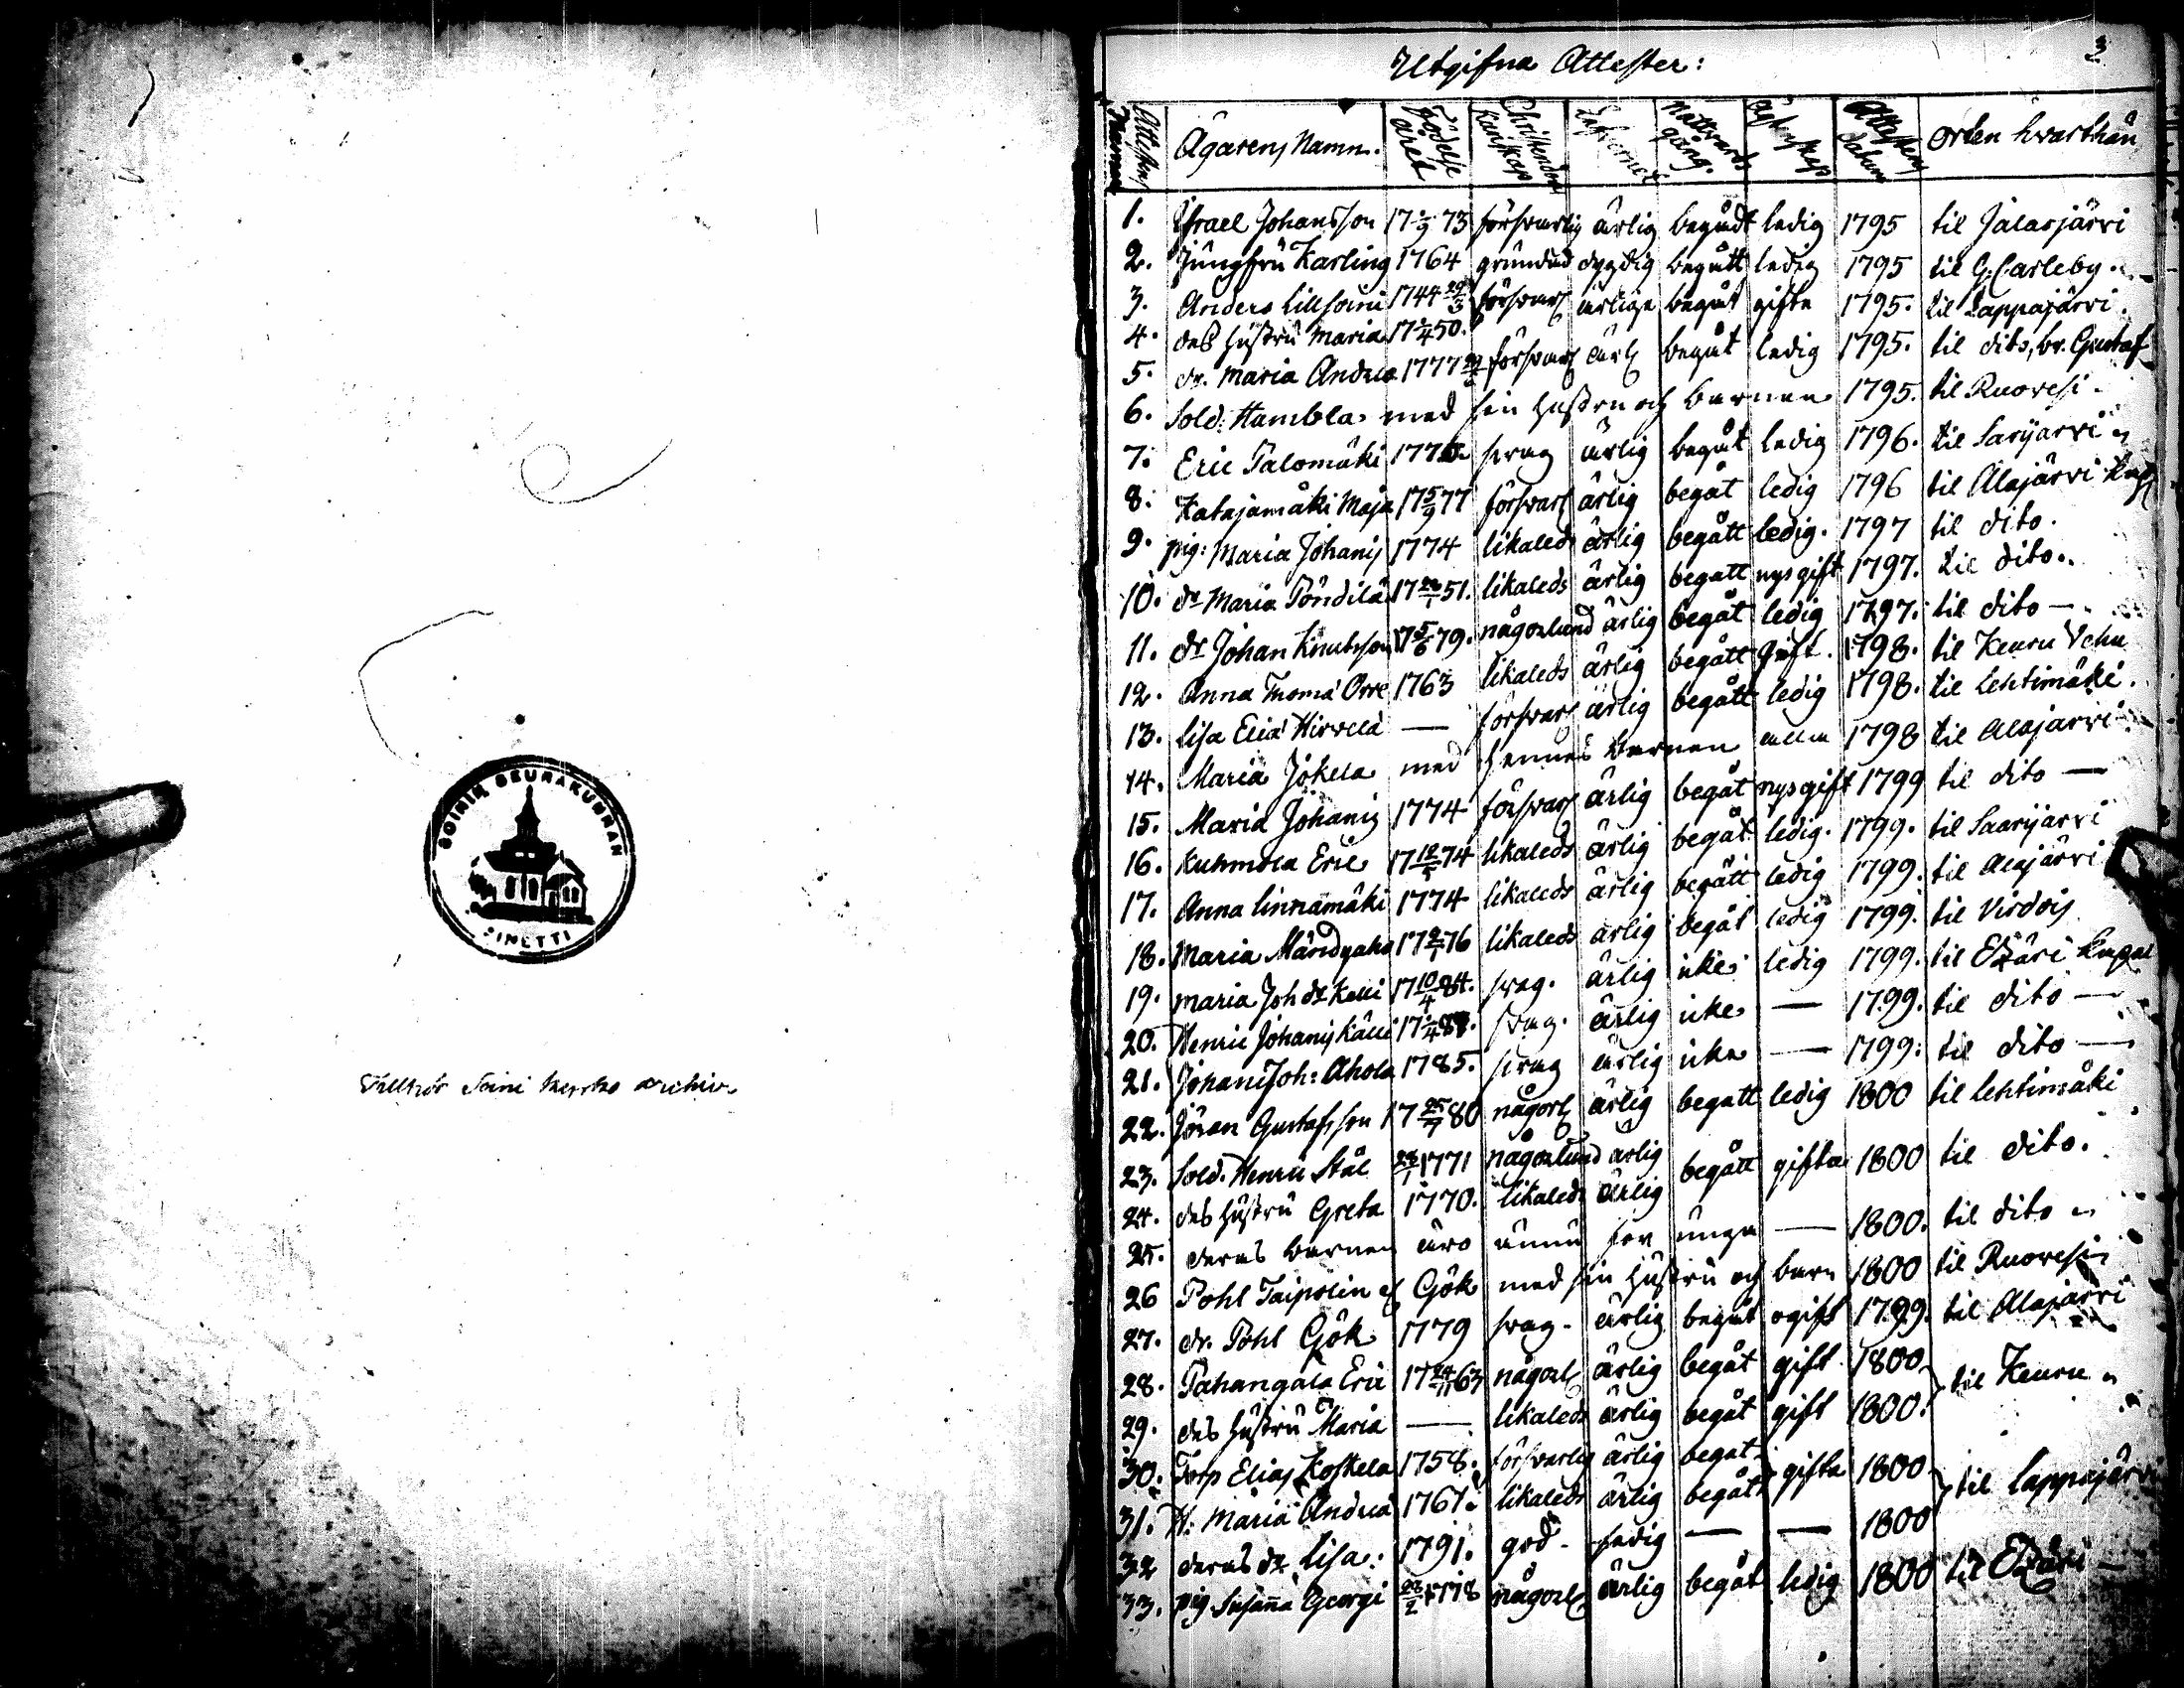 SOININ SEURAKUNNAN
SINETTI
Tillhör Soini kyrko archiv
3
Utgifna Attester:
Attestens Nummer Ägarens Namn. Födelse året Christendoms kunskap Nattvards gång. Attestens Datum Orten hvarthän
1. Israel Johansson 17 73 försvarlig ärlig begådt ledig 1795 til Jalasjärvi
2. Jungfru Karling 1764 grundad dygdig begått ledig 1795 til G. Carleby
3. Anders Lillsoini 1744 försvarl ärlige begåt gifta 1795. til Lappajärvi.
4. des hustru Maria 17 50.
5. dr. Maria Andrea 1777 försvarl ärl begåt ledig 1795. til dito, br. Gustaf
6. Sold: Hambla med sin hustru och barnen 1795. til Ruovesi.
7. Eric Palomäki svag ärlig begåt ledig 1796. til Sarijärvi
8. Katajamäki Maja 17 5/9 77 försvarl ärlig begåt ledig 1796 til Alajärvi
9. pig: Maria Johanis 1774 likaleds ärlig begått ledig. 1797 til dito.
10. dr Maria Pöndilä 17 51. likaleds ärlig begått nys gift 1797. til dito.
11. dr Johan Knutsson 17 5/6 79. någorlund ärlig begåt ledig 1797. til dito —
12. Anna Thoma Orre 1763 likaleds ärlig begått gift. 1798. til Keuru
13. Lisa Eliä Hirvelä — försvarl ärlig begått ledig 1798. til Lehtimäki.
14. Maria Jokela med hennes barnen alla 1798 til Alajärvi
15. Maria Johanis 1774 försvarl ärlig begåt nys gift 1799 til dito —
16. Kuhmola Eric 17 74 likaleds ärlig begåt ledig. 1799. til Saarijärvi
17. Anna Linnamäki 1774 likaleds ärlig begått ledig 1799. til Alajärvi
18. Maria Mändyaho 17 76 likaleds ärlig begåt ledig 1799. til Virdois
19. Maria Joh dr Källi 17 10/4 84. svag. ärlig icke ledig 1799. til Etzäri Kapel
20. Henric Johanis Källi svag. ärlig icke — 1799. til dito —
21. Johan Joh: Ahola 1785. svag ärlig icke — 1799. til dito —
22. Jöran Gustafsson 17 25/7 80 någorl ärlig begått ledig 1800 til Lehtimäki
23. Sold. Henric Stål 1771 någorlund ärlig begått gifta 1800 til dito.
24. des hustru Greta 1770. likaleds ärlig
25. deras barnen äro ännu för unga — 1800. til dito
26 Pohl Taipolin el Gök med sin hustru och barn 1800 til Ruovesi
27. dr. Pohl Gök 1779 svag. ärlig begåt ogift 1799. til Alajärvi
28. Pahangala Eric 17 24/11 63 någorl ärlig begåt gift 1800. til Keuru
29. des hustru Maria — likaleds ärlig begåt gift 1800.
30. Torp Elias Koskela 1758. försvarlig ärlig begåt gifta 1800 til Lappajärvi
31. H: Maria Andreä 1761. likaleds ärlig begåt
32 deras dr Lisa: 1791. god. — — 1800
33. pig Susanna Georgi någorl ärlig begåt ledig 1800 til Etzäri —